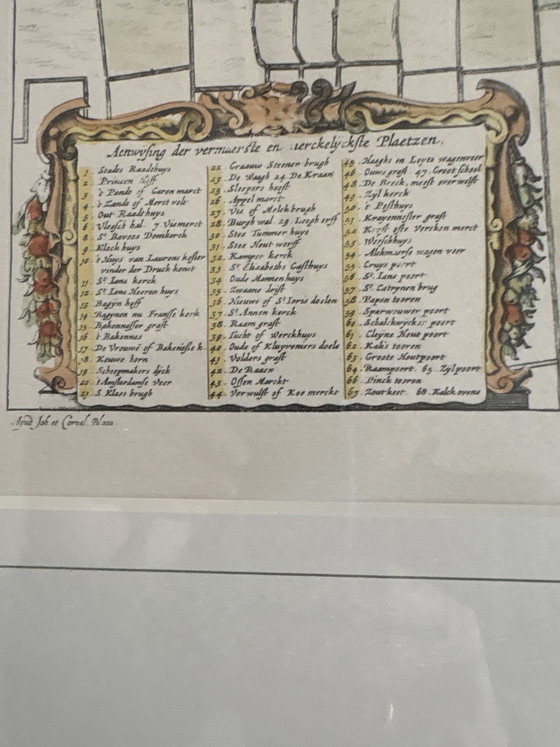 Aenwysing der vermaerste en merckelyckste Plaetzen.
1. Stadts Raedthuys
2. Princen Hoff
3. 't Pandt of Garen marct
4. 't Zandt of Merct velt
5. Out Raedthuys
6. Vleesch hal. 7 Vismerct
8. St. Bavoos Domkerck
9. Klock huys
10. 't Huys van Laurens koster
vinder der Druck konst
11. St. Ians kerck
12. St. Ians Heeren huys
13. Bagyn hoff
14. Bagynen nu Franse kerk
15. Bakenesser graft
16. 't Bakennes
17. De Vrouwe of Bakenesse k.
18. Kouwe horn
19. Scheepmakers dyck
20. t'Amsterdamse veer
21. S. Klaes brugh
22. Graauw Steenen brugh
23. De Waagh 24. De Kraan
25. Sleepers hooft
26. Appel marct
27. Vis of Melckbrugh
28. Burgh wal. 29. Leegh erff
30. Stee Timmer huys
31. Stee Hout werff
32. Kamper kerck
33. St. Elisabeths Gasthuys
34. Oude Mannenhuys
35. Zwaane drift
36. Nieuwe of St. Ioris doelen
37. St. Annen kerck
38. Raam graft
39. Tucht of Werckhuys
40. Oude of Kluyveniers doele
41. Volders graft
42. De Raaen
43. Ossen Marckt
44. Verwulft of Koe merckt
45. Haaghs en Leyts wagenveer
46. Ouwe graft 47. Groot school
48. De Beeck, meest overwulft
49. Zyl kerck
50. 't Pesthuys
51. Krayennester graft
52. Kerft ofte Vercken merct
53. Weeshuys
54. Alckmaerse wagen veer
55. Cruys poort
56. St. Ians poort
57. St. Catrynen brug
58. Papen tooren
59. Sparwouwer poort
60. Schalckwycker poort
61. Cleyne Hout poort
62. Kals tooren
63. Groote Houtpoort
64. Raampoort. 65. Zylpoort
66. Pinck tooren
67. Zoutkeet. 68. Kalckovens
Apud Joh. et Cornel. Blaeu